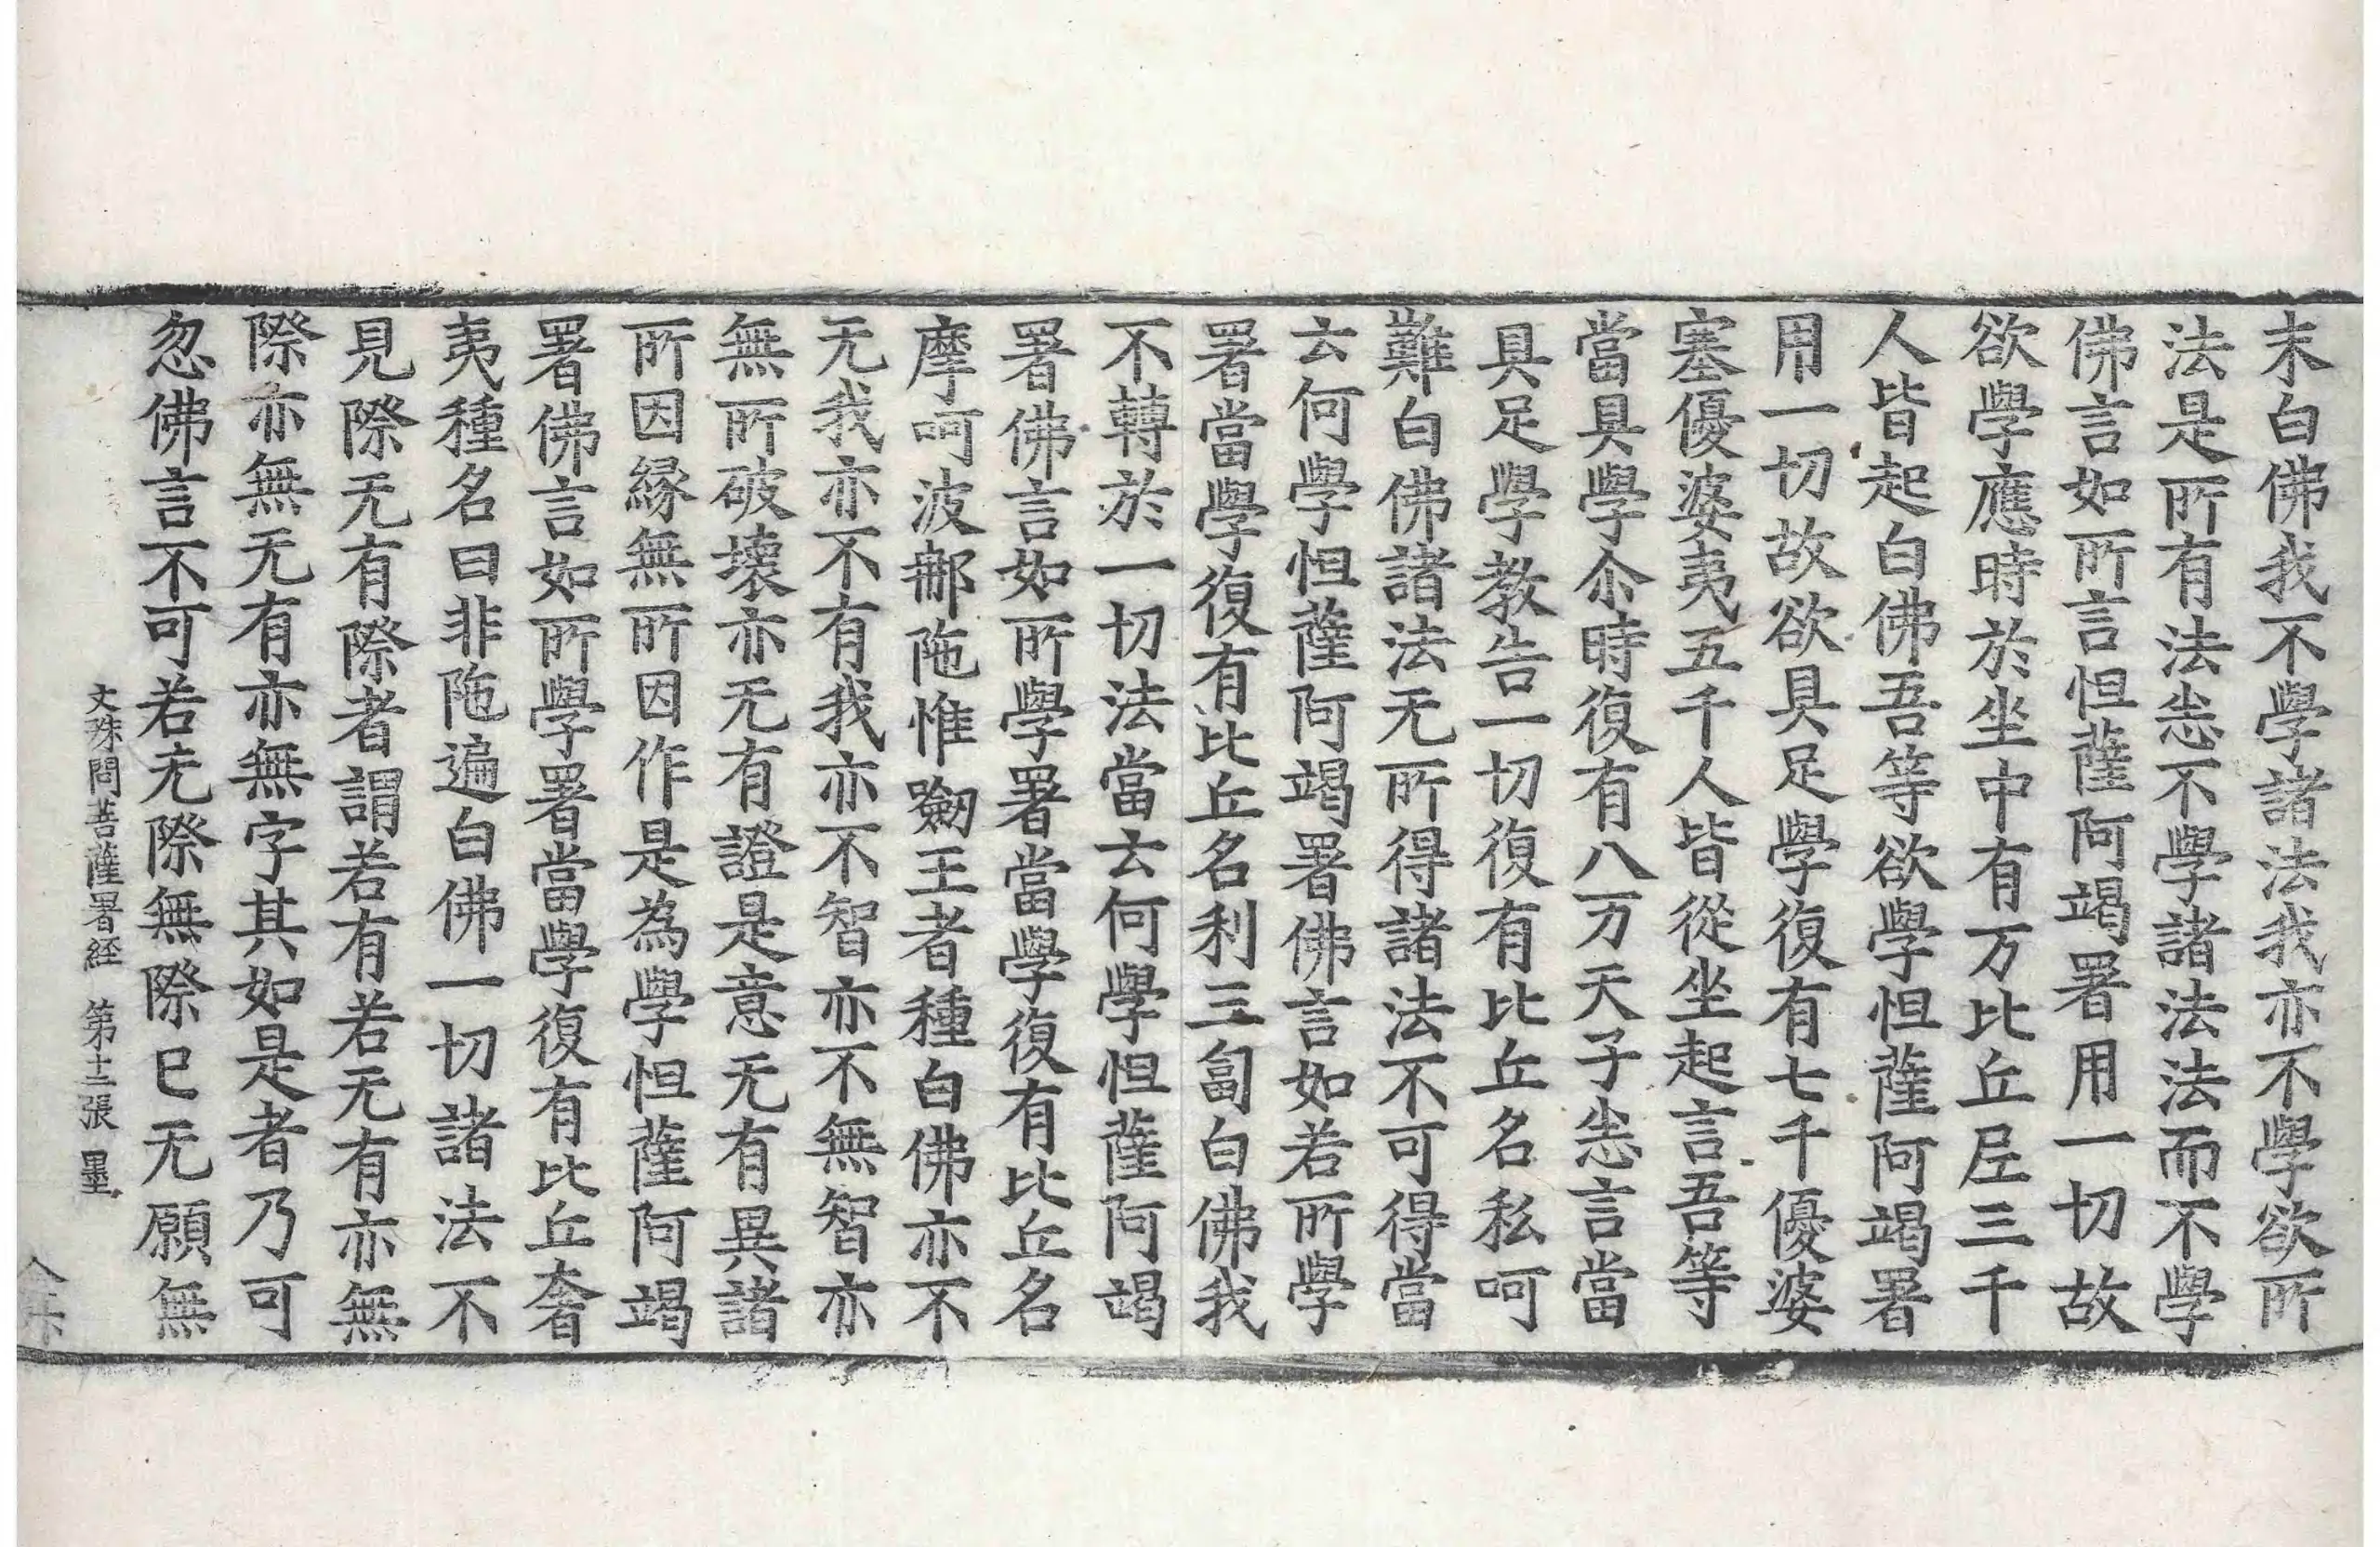 末白佛我不學諸法我亦不學欲所
法是所有法恙不學諸法法而不學
佛言如所言怛薩阿竭署用一切故
欲學應時於坐中有万比丘𡰱三千
人皆起白佛吾等欲學怛薩阿竭署
用一切故欲具足學復有七千優婆
塞優婆夷五千人皆從坐起言吾等
當具學尒時復有八万天子恙言當
具足學教告一切復有比丘名私呵
難白佛諸法无所得諸法不可得當
云何學怛薩阿竭署佛言如若所學
署當學復有比丘名利三匐白佛我
不轉於一切法當云何學怛薩阿竭
署佛言如所學署當學復有比丘名
摩呵波那陁惟勠王者種白佛亦不
无我亦不有我亦不智亦不無智亦
無所破壞亦无有證是意无有異諸
所因緣無所因作是為學怛薩阿竭
署佛言如所學署當學復有比丘奢
夷種名曰非陁遍白佛一切諸法不
見際无有際者謂若有若无有亦無
際亦無无有亦無字其如是者乃可
忽佛言不可若无際無際已无願無
文殊問菩薩署経 第十二張 墨